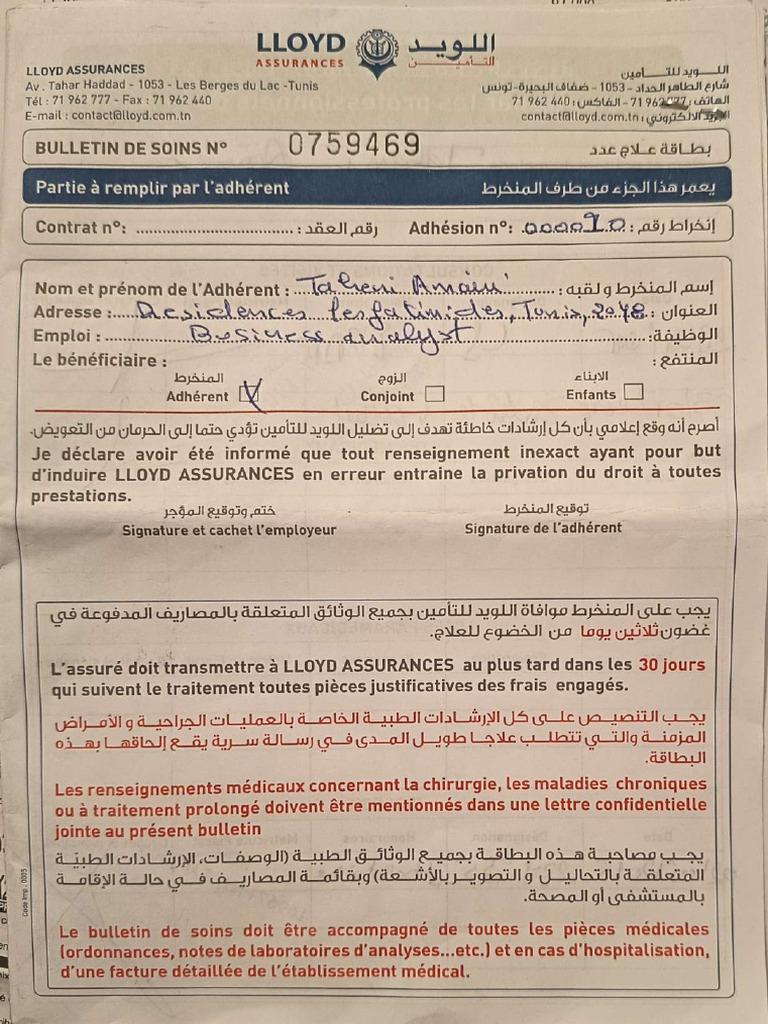 LLOYD اللويد
ASSURANCES للتأمين
LLOYD ASSURANCES
Av. Tahar Haddad - 1053 - Les Berges du Lac -Tunis
Tél : 71 962 777 - Fax : 71 962 440
E-mail : contact@lloyd.com.tn
اللـويد للتــأمين
شارع الطاهر الحداد - 1053 - ضفاف البحيرة-تونس
الهاتف : 71 962 777 - الفاكس : 440 962 71
البريد الالكتروني : contact@lloyd.com.tn
BULLETIN DE SOINS N° 0759469 بطاقة علاج عدد
Partie à remplir par l'adhérent يعمر هذا الجزء من طرف المنخرط
Contrat n°: رقم العقد : Adhésion n°: إنخراط رقم :
Nom et prénom de l'Adhérent : Taheri Amani إسم المنخرط و لقبه :
Adresse : Residences les fatimides, Tunis, 2048 العنوان :
Emploi : Business analyst الوظيفة:
Le bénéficiaire : المنتفع :
المنخرط الزوج الابناء
Adhérent Conjoint Enfants
أصرح أنه وقع إعلامي بأن كل إرشادات خاطئة تهدف إلى تضليل اللويد للتأمين تؤدي حتما إلى الحرمان من التعويض.
Je déclare avoir été informé que tout renseignement inexact ayant pour but
d'induire LLOYD ASSURANCES en erreur entraine la privation du droit à toutes
prestations.
ختم وتوقيع المؤجر توقيع المنخرط
Signature et cachet l'employeur Signature de l'adhérent
يجب على المنخرط موافاة اللويد للتأمين بجميع الوثائق المتعلقة بالمصاريف المدفوعة في
غضون ثلاثين يوما من الخضوع للعلاج.
L'assuré doit transmettre à LLOYD ASSURANCES au plus tard dans les 30 jours
qui suivent le traitement toutes pièces justificatives des frais engagés.
يجب التنصيص على كل الإرشادات الطبية الخاصة بالعمليات الجراحية و الأمراض
المزمنة والتي تتطلب علاجا طويل المدى في رسالة سرية يقع إلحاقها بهذه
البطاقة.
Les renseignements médicaux concernant la chirurgie, les maladies chroniques
ou à traitement prolongé doivent être mentionnés dans une lettre confidentielle
jointe au présent bulletin
يجب مصاحبة هذه البطاقة بجميع الوثائق الطبية (الوصفات، الإرشادات الطبيّة
المتعلقة بالتحاليل و التصوير بالأشعة) وبقائمة المصاريف في حالة الإقامة
بالمستشفى أو المصحة.
Le bulletin de soins doit être accompagné de toutes les pièces médicales
(ordonnances, notes de laboratoires d'analyses...etc.) et en cas d'hospitalisation,
d'une facture détaillée de l'établissement médical.
Code Imp : 0005